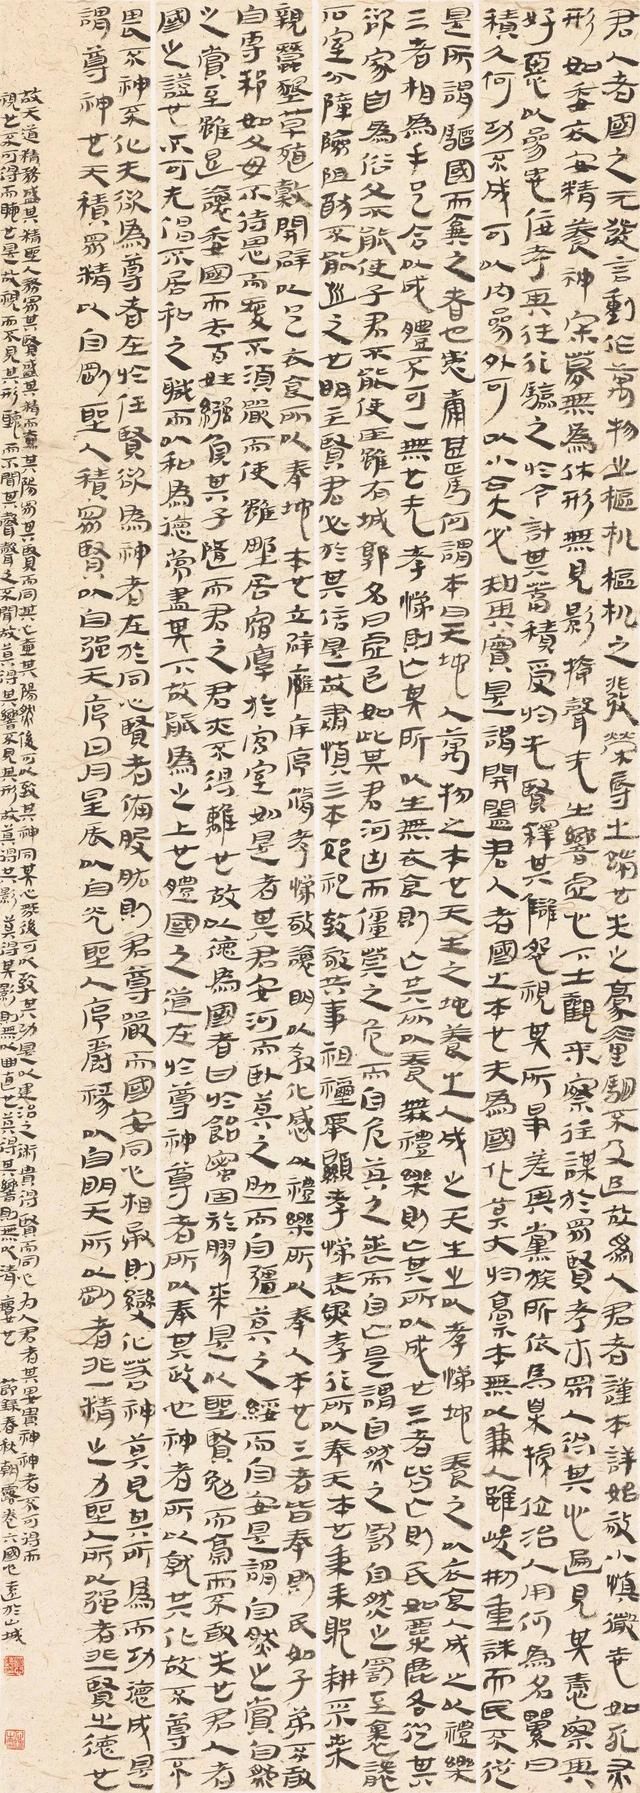 君人者國之元發言動作萬物之樞機樞機之發榮辱之端也失之豪釐駟不及追故為人君者謹本詳始敬小慎微志如死灰
形如委衣安精養神寂寞無為休形無見影揜聲無出響虛心下士觀來察往謀於眾賢考求眾人得其心遍見其情察其
好惡以參忠佞考其往行驗之於今計其蓄積受於先賢釋其讎怨視其所爭差其黨族所依為臬據位治人用何為名累日
積久何功不成可以內參外可以小占大必知其實是謂開闔君人者國之本也夫為國化莫大於崇本無以兼人雖峻刑重誅而民不從
是所謂驅國而棄之者也患庸甚焉何謂本曰天地人萬物之本也天生之地養之人成之天生之以孝悌地養之以衣食人成之以禮樂
三者相為手足合以成體不可一無也無孝悌則亡其所以生無衣食則亡其所以養無禮樂則亡其所以成也三者皆亡則民如麋鹿各從其
欲家自為俗父不能使子君不能使臣雖有城郭名曰虛邑如此其君枕塊而僵莫之危而自危莫之喪而自亡是謂自然之罰自然之罰至裹襲
石室分障險阻猶不能逃之也明主賢君必於其信是故肅慎三本郊祀致敬共事祖禰舉顯孝悌表異孝行所以奉天本也秉耒躬耕采桑
親蠶墾草殖穀開辟以足衣食所以奉地本也立辟廱庠序脩孝悌敬讓明以教化感以禮樂所以奉人本也三者皆奉則民如子弟不敢
自專邦如父母不待恩而愛不須嚴而使雖野居宿厚於宮室如是者其君安枕而臥莫之助而自彊莫之綏而自安是謂自然之賞自然
之賞至雖退讓委國而去百姓繦負其子隨而君之君亦不得離也故以德為國者甘於飴蜜固於膠漆是以聖賢勉而崇而不敢失也君人者
國之證也不可先倡不居和之職而以和為德常盡其下故能為之上也體國之道在於尊神尊者所以奉其政也神者所以就其化故不尊不
畏不神不化夫欲為尊者在於任賢欲為神者在於同心賢者備股肱則君尊嚴而國安同心相承則變化若神莫見其所為而功德成是
謂尊神也天積眾精以自剛聖人積眾賢以自強天序日月星辰以自光聖人序爵祿以自明天所以剛者非一精之力聖人所以強者非一賢之德也
故天道務盛其精聖人務眾其賢盛其精而壹其陽眾其賢而同其心壹其陽然後可以致其神同其心然後可以致其功是以建治之術貴得賢而同心為人君者其要貴神神者不可得而
視也不可得而聽也是故視而不見其形聽而不聞其聲聲之不聞故莫得其響不見其形故莫得其影莫得其影則無以曲直也莫得其響則無以清濁也 節錄春秋露卷六 於山城